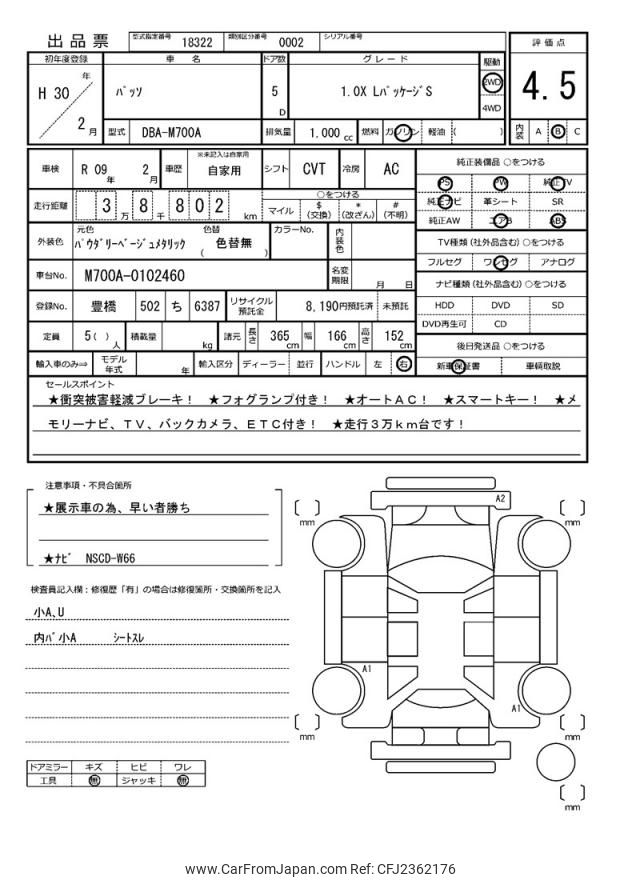 出品票 型式指定番号 18322 類別区分番号 0002 シリアル番号
初年度登録 車名 ドア数 グレード 駆動 評価点
H 30 年 2 月 パッソ 5 D 1.0X LパッケージS 2WD 4WD 4.5
型式 DBA-M700A 排気量 1.000 cc 燃料 ガソリン 軽油 ( ) 内装 A B C
車検 R 09 年 2 月 車歴 ※未記入は自家用 自家用 シフト CVT 冷房 AC
走行距離 3 万 8 千 8 0 2 km ○をつける マイル $ (交換) * (改ざん) # (不明)
外装色 元色 パウダリーベージュメタリック 色替 色替無 ( ) カラーNo. 内装色
車台No. M700A-0102460 名変期限 月 日
登録No. 豊橋 502 ち 6387 リサイクル預託金 8,190円預託済 未預託
定員 5 ( ) 人 積載量 kg 諸元 長さ 365 cm 幅 166 cm 高さ 152 cm
輸入車のみ⇒ モデル年式 年 輸入区分 ディーラー 並行 ハンドル 左 右
純正装備品 ○をつける
PS PW 純正TV
純正ナビ 革シート SR
純正AW エアB ABS
TV種類 (社外品含む) ○をつける
フルセグ ワンセグ アナログ
ナビ種類 (社外品含む) ○をつける
HDD DVD SD
DVD再生可 CD
後日発送品 ○をつける
新車保証書 車輌取説
セールスポイント
★衝突被害軽減ブレーキ! ★フォグランプ付き! ★オートAC! ★スマートキー! ★メ
モリーナビ、TV、バックカメラ、ETC付き! ★走行3万km台です!
注意事項・不具合箇所
★展示車の為、早い者勝ち
★ナビ NSCD-W66
検査員記入欄:修復歴「有」の場合は修復箇所・交換箇所を記入
小A、U
内バ小A シートスレ
ドアミラー キズ ヒビ ワレ
工具 無 ジャッキ 無
A2
mm mm
A1
A1
mm mm
mm
www.CarFromJapan.com Ref: CFJ2362176